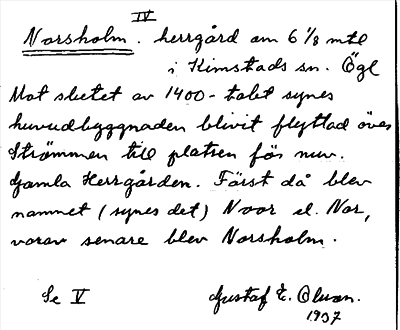 IV
Norsholm. herrgård om 6 1/8 mtl
i Kimstads sn. Ögl
Mot slutet av 1400-talet synes
huvudbyggnaden blivit flyttad över
Strömmen till platsen för nuv.
Gamla Herrgården. Först då blev
namnet (synes det) Noor el. Nor,
varav senare blev Norsholm.
Se V Gustaf E. Olsson.
1937